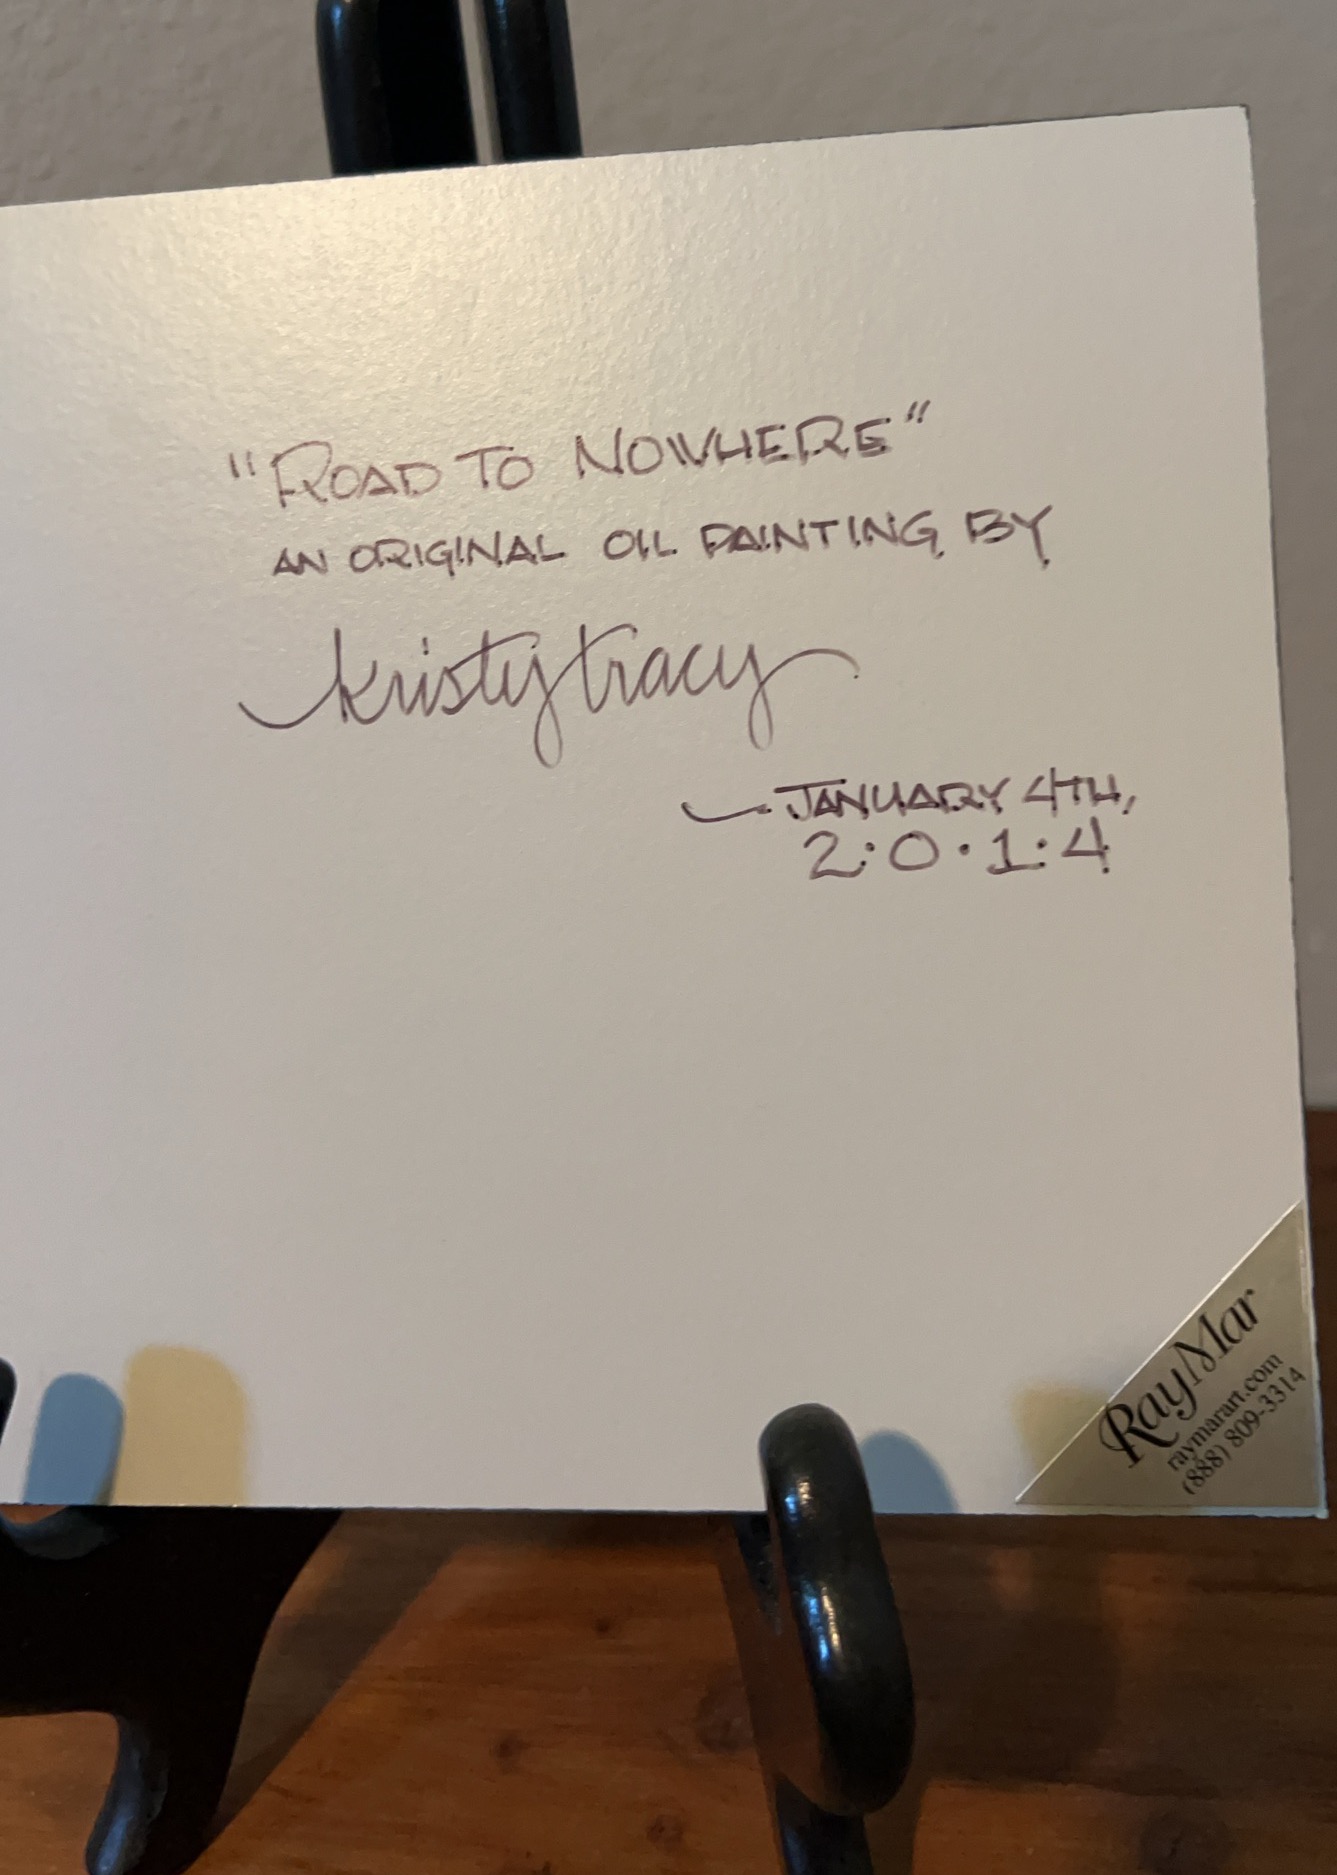 "ROAD TO NOWHERE"
AN ORIGINAL OIL PAINTING BY
kristy tracy
JANUARY 4TH,
2·0·1·4
RayMar
raymarart.com
(888) 809-3314